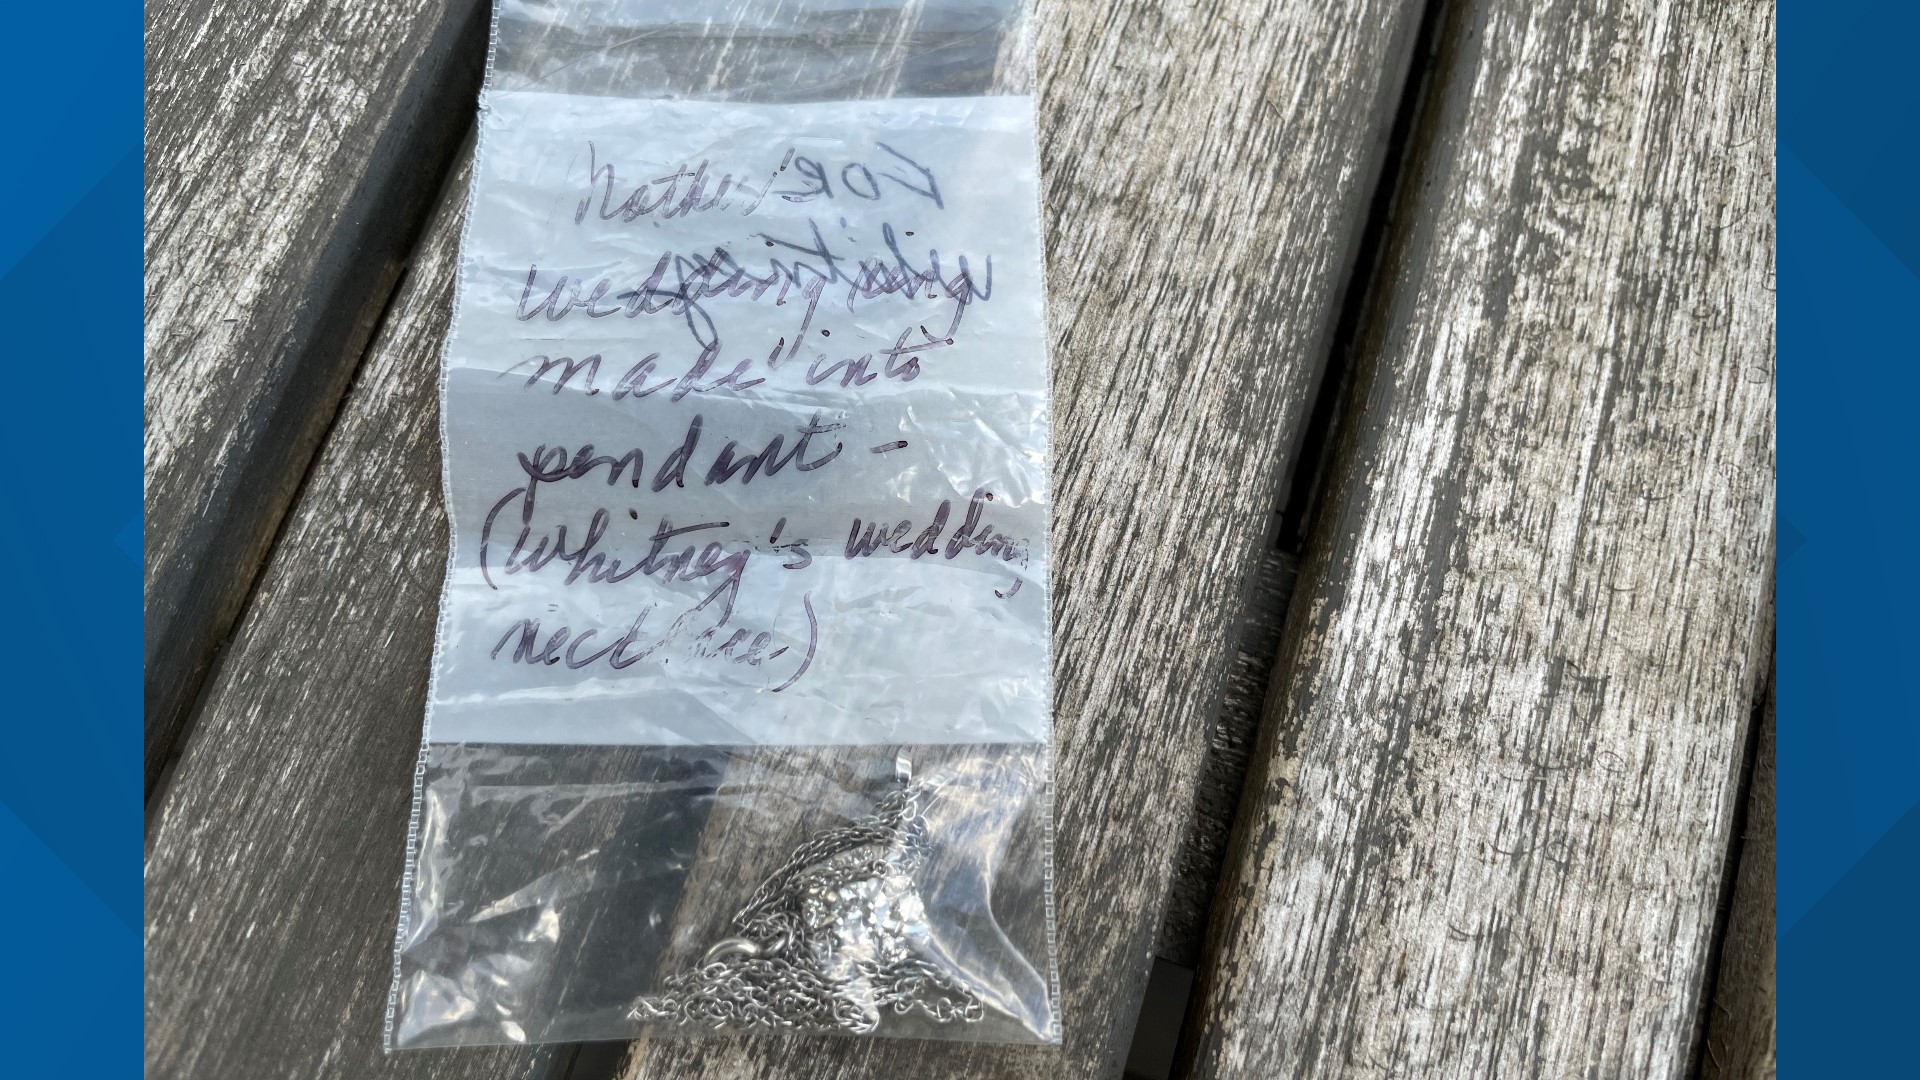 Mother's
wedding ring
made into
pendant -
(Whitney's wedding
necklace)
FOR
Whitney